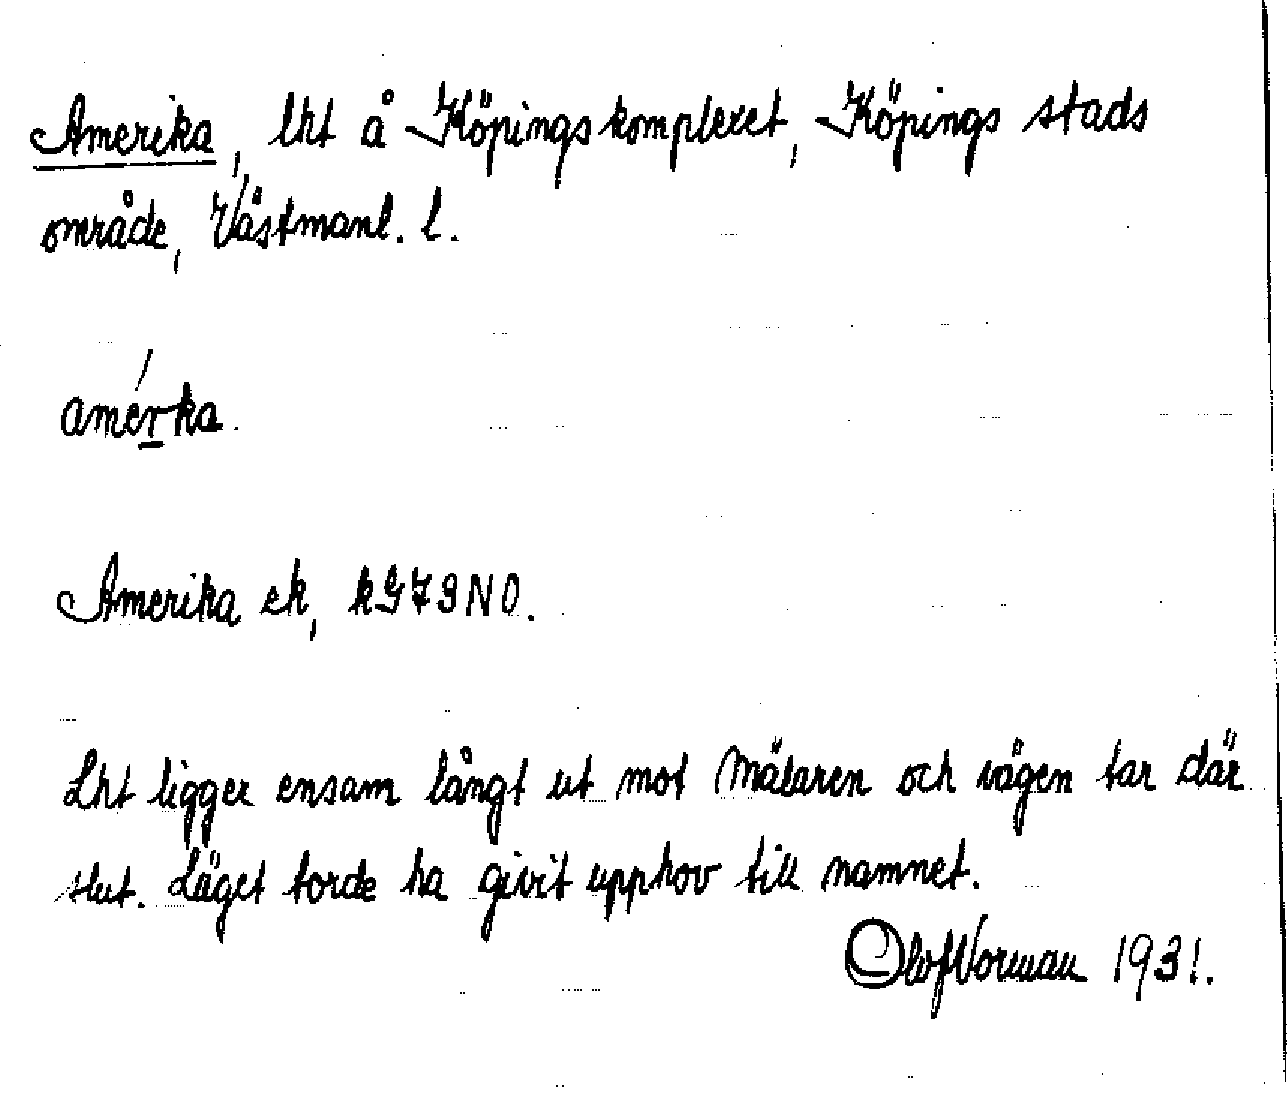 Amerika, lht å Köpingskomplexet, Köpings stads
område, Västmanl. l.
amérka.
Amerika ek, kG73NO.
Lht ligger ensam långt ut mot Mälaren och vägen tar där
slut. Läget torde ha givit upphov till namnet.
Olof Norman 1931.